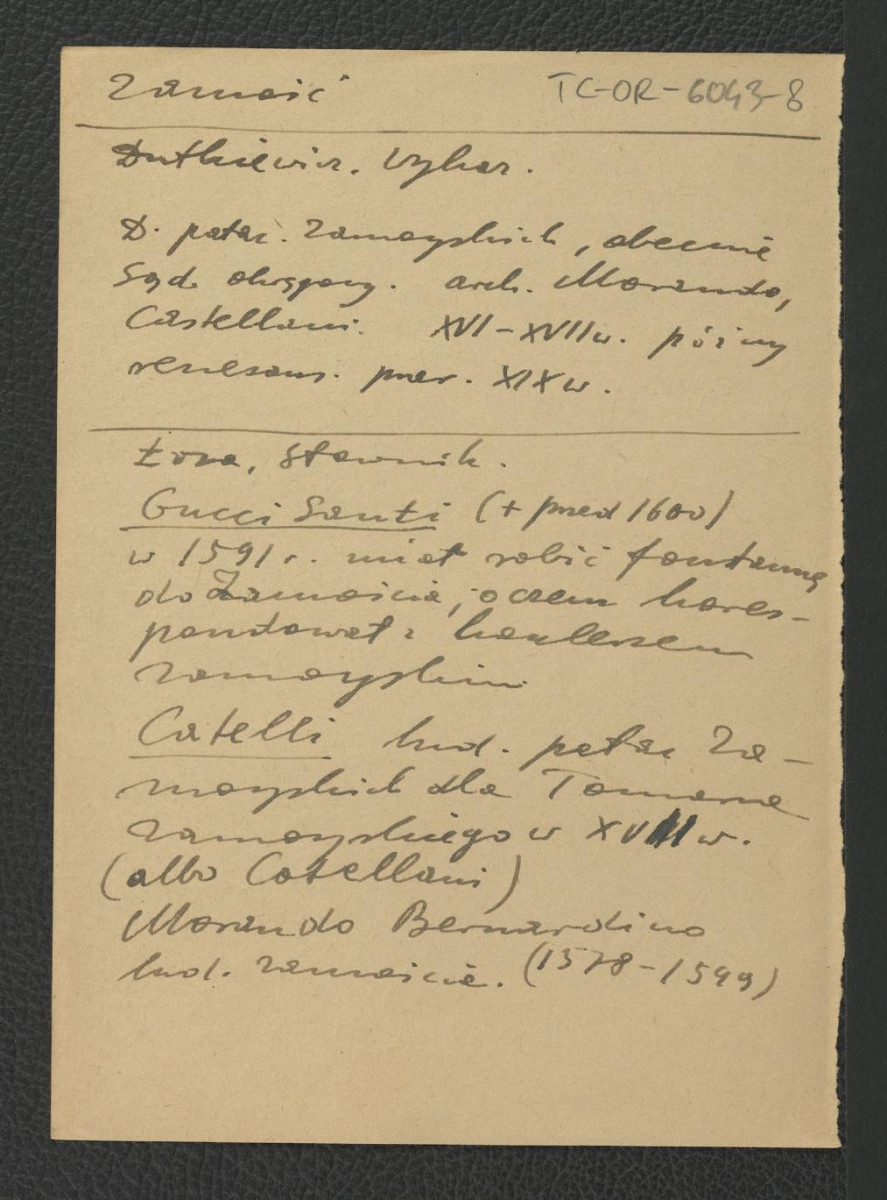 Zamość TC-OR-6043-8
Dutkiewicz. Wykaz.
D. pałac. Zamoyskich, obecnie
Sąd okręgowy. arch. Morando,
Castellani. XVI-XVIIw. późny
renesans. przer. XIXw.
Łoza, Słownik.
Gucci Santi (+ przed 1600)
w 1591 r. miał robić fontannę
do Zamościa, o czem kores-
pondował z kanlerzem
Zamoyskim
Catelli bud. pałac Za-
moyskich dla Tomasza
Zamoyskiego w XVII w.
(albo Catellani)
Morando Bernardino
bud. Zamościa. (1578-1599)